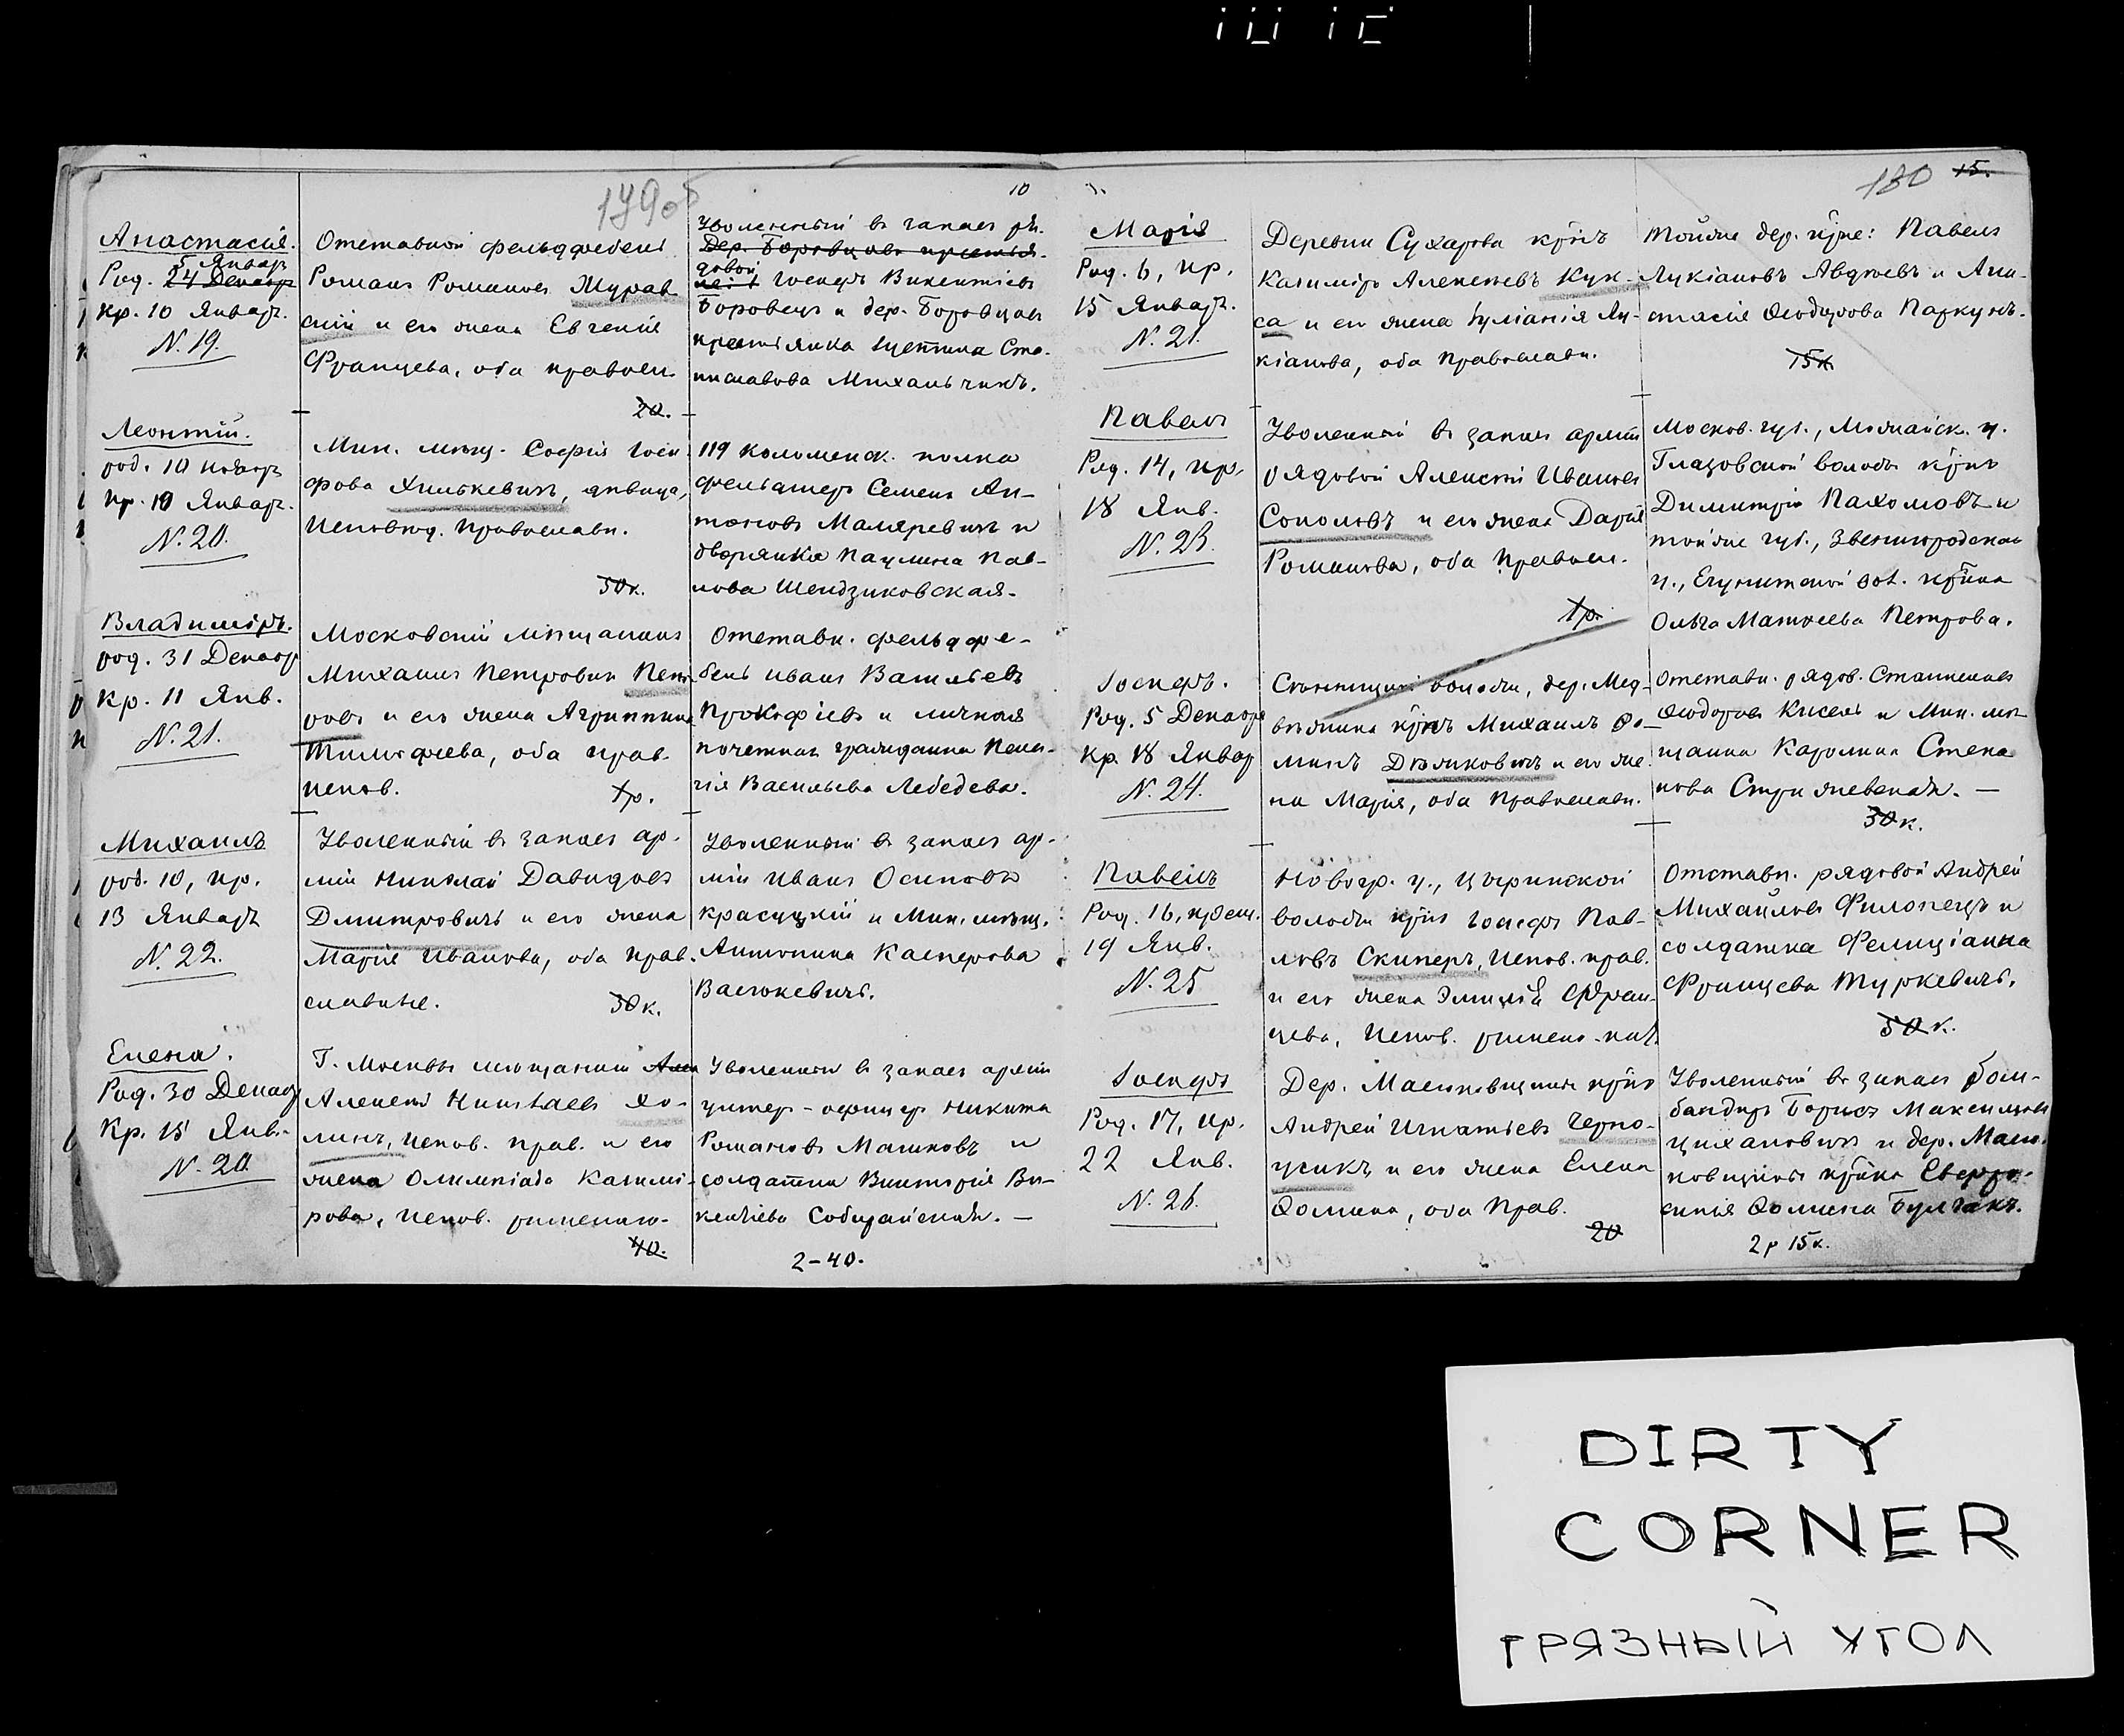 179об
10
Анастасія.
5 Январ
Род. 24 Декабр
Кр. 10 Январ.
N. 19.
Отставной фельдфебель
Романъ Романовъ Мурав
скій и его жена Евгенія
Францева, оба правосл.
20.
Уволенный въ запасъ ря.
Дер. Боровцовъ крестья-
довой
Іосифъ Викентіевъ
Боровецъ и дер. Боровцовъ
крестьянка Юстина Ста-
ниславова Михальчикъ.
Леонтій.
род. 10 ноябр
кр. 10 Январ.
N. 20.
Мин. мѣщ. Софія Іоси
фова Хилькевичъ, дѣвица,
Исповѣд. Православн.
50к.
119 Коломенск. полка
фельдшеръ Семенъ Ан-
тоновъ Маляревичъ и
дворянка Паулина Пав-
лова Шендзиковская.
Владиміръ.
род. 31 Декабр
Кр. 11 Янв.
N. 21.
Московскій мѣщанинъ
Михаилъ Петровичъ Пет
ровъ и его жена Агриппина
Тимофеева, оба прав.
испов.
1р.
Отставн. фельдфе-
бель Иванъ Васильевъ
Прокофіевъ и личная
почетная гражданка Пела-
гія Васильева Лебедева.
Михаилъ
род. 10, кр.
13 Январ
N. 22.
Уволенный въ запасъ ар-
міи Николай Давидовъ
Дмитровичъ и его жена
Марія Иванова, оба прав.
славные.
30к.
Уволенный въ запасъ ар-
міи Иванъ Осиповъ
Красуцкій и Мин. мѣщ.
Антонина Касперова
Васюкевичъ.
Елена.
Род. 30 Декаб
Кр. 15 Янв.
N. 20
Г. Москвы мѣщанинъ Але
Алексѣй Николаевъ Хо-
линъ, испов. прав. и его
жена Олимпіада Казимі-
рова, испов. римско-
40.
Уволенный въ запасъ арміи
унтер-офицеръ Никита
Романовъ Машковъ и
солдатка Викторія Ви-
кентіева Собирайская. —
2-40.
180 15.
Марія
Род. 6, кр.
15 Январ.
N. 21.
Деревни Сухарева крнъ
Казиміръ Алексѣевъ Кук-
са и его жена Іуліанія Лу-
кіанова, оба православн.
Тойже дер. крне: Павелъ
Лукіановъ Авдѣевъ и Ана-
стасія Ѳеодорова Паркунъ.
15к
Павелъ
Род. 14, кр.
18 Янв.
N. 23.
Уволенный въ запасъ арміи
рядовой Алексѣй Ивановъ
Соколовъ и его жена Дарія
Романова, оба правосл.
1р.
Москов. губ., Можайск. у.
Глазовской волости крнъ
Димитрій Пахомовъ и
тойже губ., Звенигородскаго
у., Ягунитской вол. крнка
Ольга Матвеева Петрова.
Іосифъ.
Род. 5 Декабр
Кр. 18 Январ
N. 24.
волости, дер. Мед-
вѣжина крнъ Михаилъ Ѳо-
минъ Дѣжковичъ и его же-
на Марія, оба православн.
Отставн. рядов. Станиславъ
Ѳеодоровъ Кисель и Мин. мѣ-
щанка Каролина Степа
нова Стржижевская. —
30к.
Павелъ
Род. 16, крещ.
19 Янв.
N. 25
Новогр. у., Цыринской
волости крнъ Іосифъ Пав-
ловъ Скиперъ, испов. прав.
и его жена Эмилія Фран-
цева, испов. римско-кат.
Отставн. рядовой Андрей
Михайловъ Филонецъ и
солдатка Фелиціанна
Францева Туркевичъ.
50к.
Іосифъ
Род. 17, кр.
22 Янв.
N. 26.
Дер. Масюковщины крнъ
Андрей Игнатьевъ Черно-
усикъ и его жена Елена
Ѳомина, оба прав.
20
Уволенный въ запасъ бом-
бандиръ Борисъ Максимовъ
Цихановичъ и дер. Масю-
ковщины крнка Евфро-
синія Ѳомина Булгакъ.
2р 15к.
DIRTY
CORNER
ГРЯЗНЫЙ УГОЛ